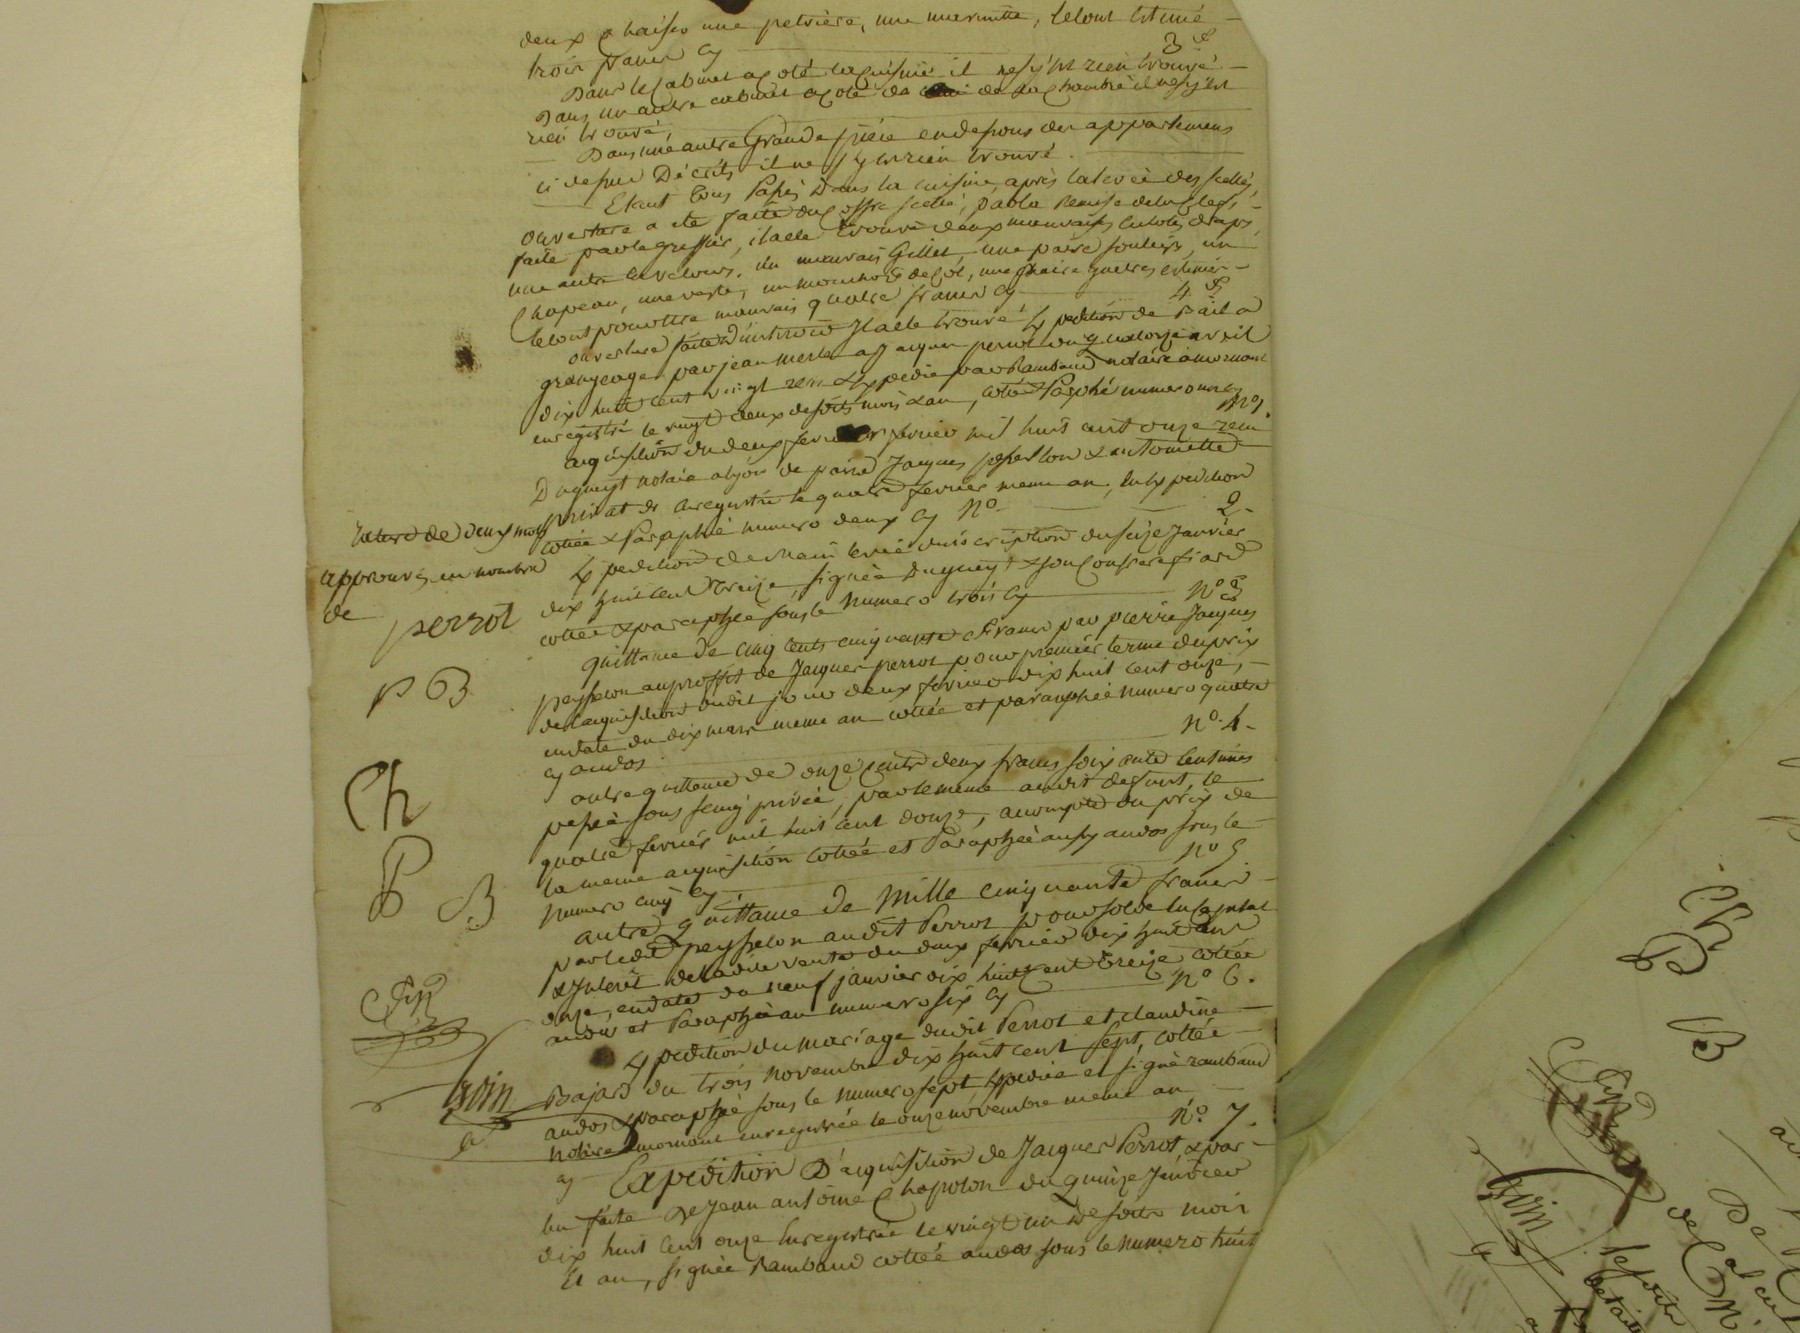 deux chaises une petrière, une marmitte, le tout estimé
trois francs cy 3 f
Dans le cabinet a coté la cuisine il ne s'y est rien trouvé
Dans un autre cabinet a coté de de la chambre il ne s'y est
rien trouvé,
Dans une autre Grande pièce en dessous des appartemens
ci dessus Décrits il ne s'y est rien trouvé.
Etant tous Passés Dans la cuisine, après la levée des scellés,
ouverture a eté faite du coffre scellé, par la remise de la clef,
faite par le greffier, il a eté trouvé deux mauvaises culotes draps,
une autre de velours, un mauvais Gillet, une paire souliers, un
Chapeau, une veste, un mouchoir de col, une paire guetres estimés
le tout pour être mauvais quatre francs cy 4 f
ouverture faite d'un tiroir Il a eté trouvé Expedition de Bail a
grangeage, par jean merle a Jacques perrot du quatorze avril
dix huit cent vingt expedié par Rambaud notaire a mornant
enregistré le vingt deux desdits mois & an, cotté & Paraphé numero un cy
N° 1.
acquisition du deux fevrier mil huit cent onze recu
Dugueyt notaire a lyon de pierre Jacques peysselon & antoinette
privat de enregistré le quatre fevrier meme an, en expedition
cottée & Paraphée numero deux cy N° 2
Expedition de main levée d'inscription du seize Janvier
dix huit cent treize, signée Duguey & son confrere fiard
cottée & paraphée sous le numero trois cy N° 3
quittance de cinq cents cinquante francs par pierre Jacques
peysselon au proffit de Jacques perrot pour premier terme du prix
de l'acquisition dudit jour deux fevrier dix huit cent onze,
en date du dix mars meme an cottée et paraphée numero quatre
cy au dos N° 4
autre quittance de onze cents deux francs soixante centimes
passée sous seing privé, par le meme audit defunt, le
quatre fevrier mil huit cent douze, a compte du prix de
la meme acquisition cottée et Paraphée aussy au dos sous le
numero cinq cy N° 5
autre quittance de mille cinquante francs
par ledit peysselon audit Perrot pour solde en capital
& Interêt de ladite vente du deux fevrier dix huit cent
onze, en date du neuf janvier dix huit cent treize cottée
au dos et Paraphée au numero six cy N° 6.
Expedition du mariage dudit Perrot et claudine
Bajard du trois novembre dix huit cent sept, cottée
au dos & paraphée sous le numero sept Expediée et signé rambaud
notaire a mornant enregistrée le onze novembre meme an
cy N° 7.
Expedition D'acquisition de Jacques Perrot, & par
lui faite De Jean antoine Chapolon du quinze Janvier
dix huit cent onze Enregistrée le vingt un desdits mois
Et an, signée Rambaud cottée au dos sous le numero huit
rature de deux mots
approuvés en nombre
de perrot
P B
Ch
P B
Ch
P
B